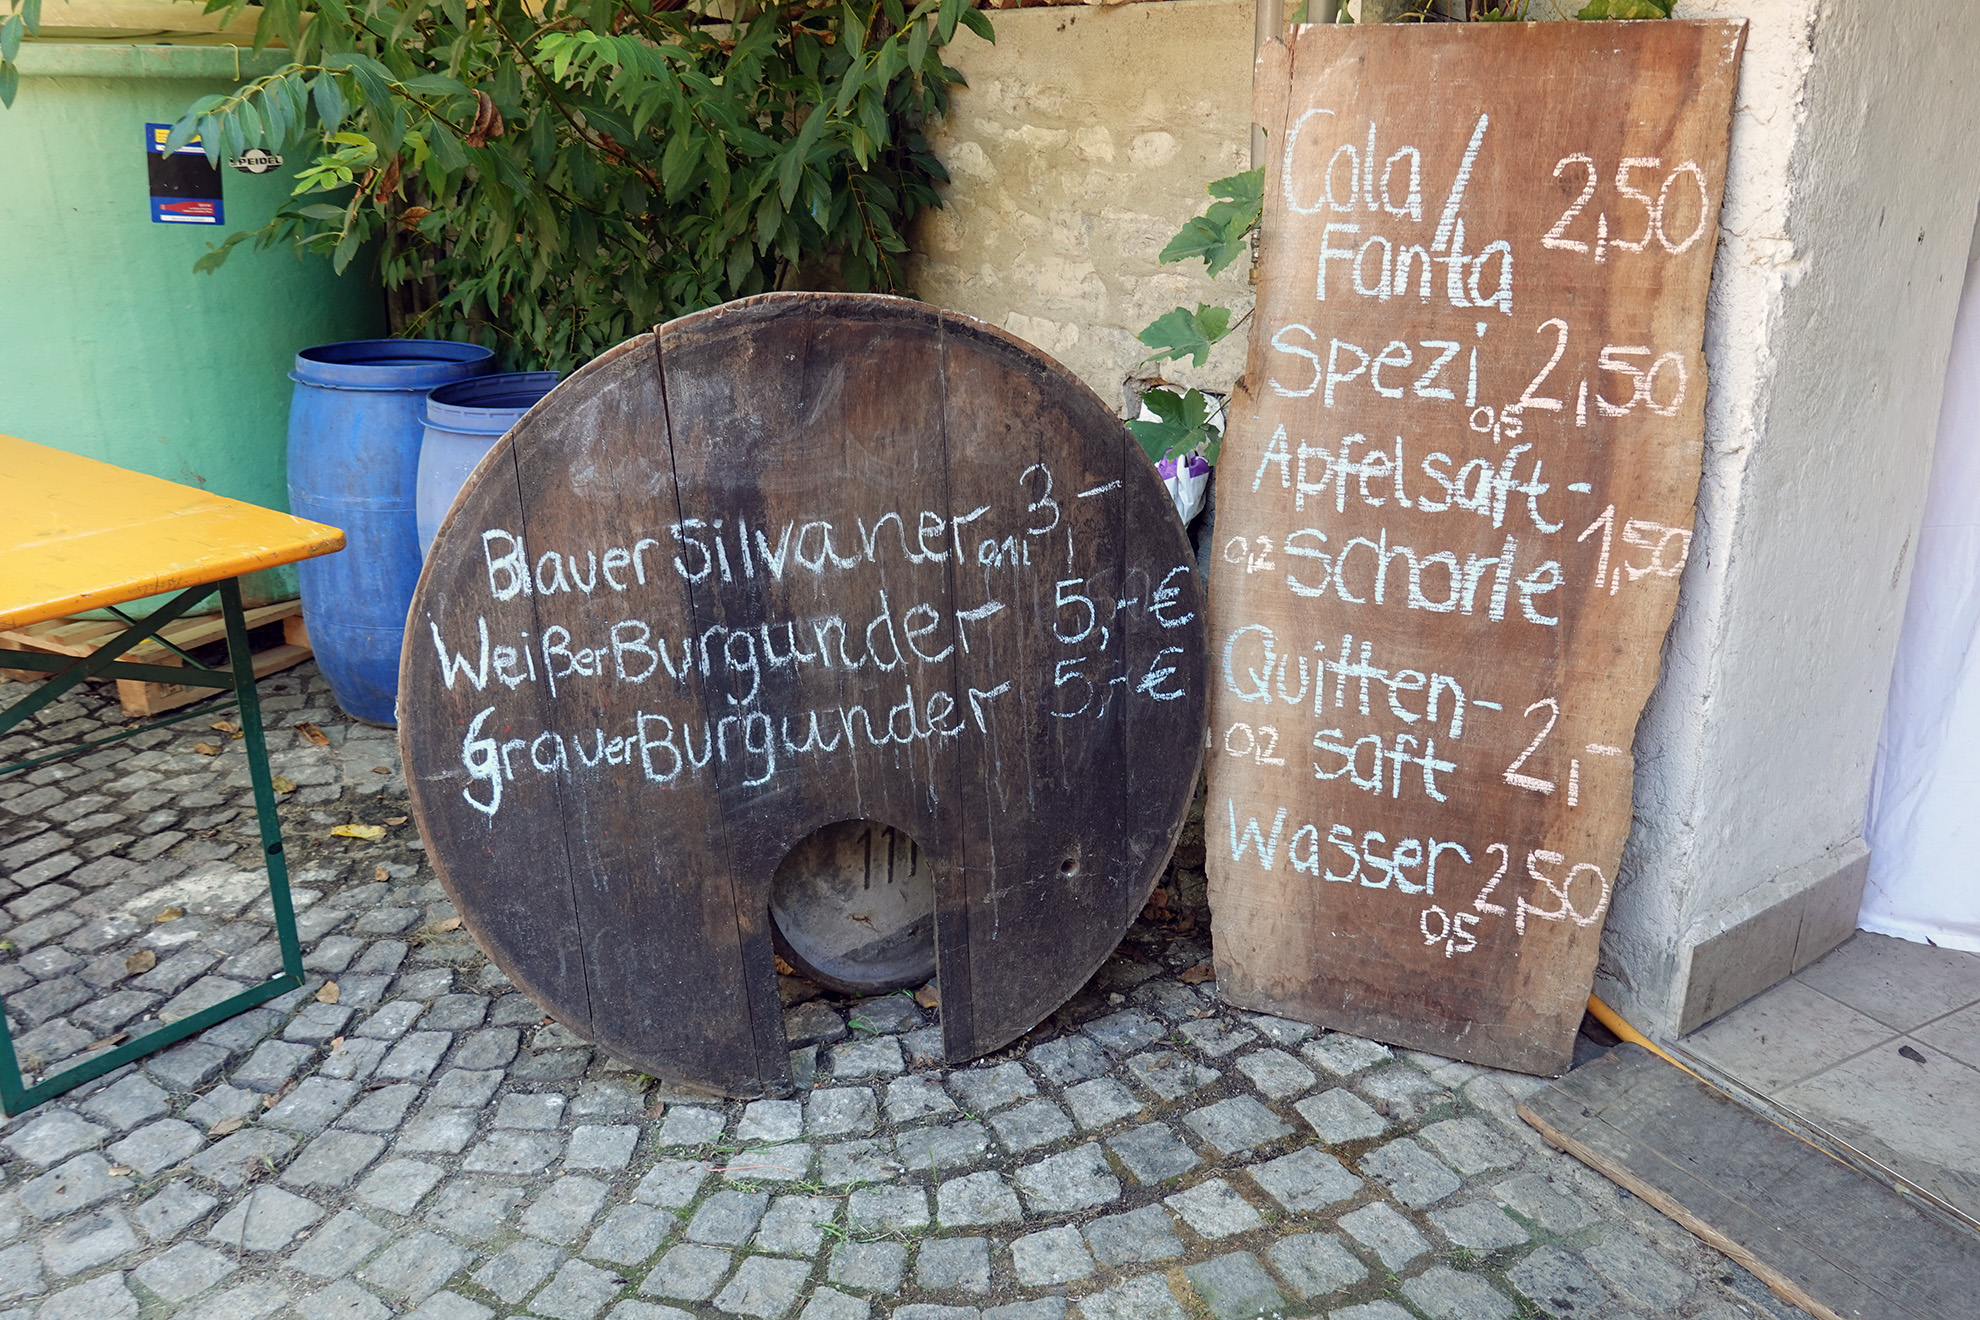 PEIDEL
Blauer Silvaner 0,1l 3,-
Weißer Burgunder 5,- €
Grauer Burgunder 5,- €
111
Cola/ 2,50
Fanta
Spezi 2,50
0,5
Apfelsaft-
0,2 Schorle 1,50
Quitten-
0,2 saft 2,-
Wasser 2,50
0,5